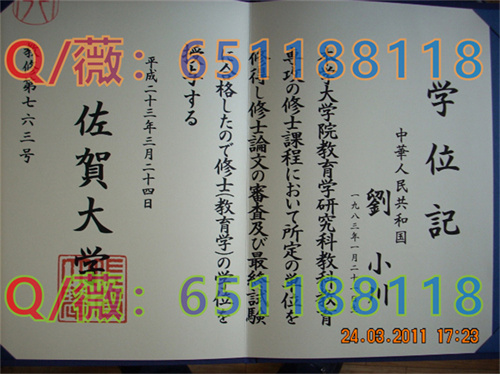 学位記
中華人民共和国
劉 小川
一九八三年一月二十
大学院教育学研究科教科教育
専攻の修士課程において所定の単位を
修得し修士論文の審査及び最終試験
に合格したので修士(教育学)の学位を
授与する
平成二十三年三月二十四日
佐賀大学
第七六三号
Q/薇:651188118
Q/薇:651188118
24.03.2011 17:23